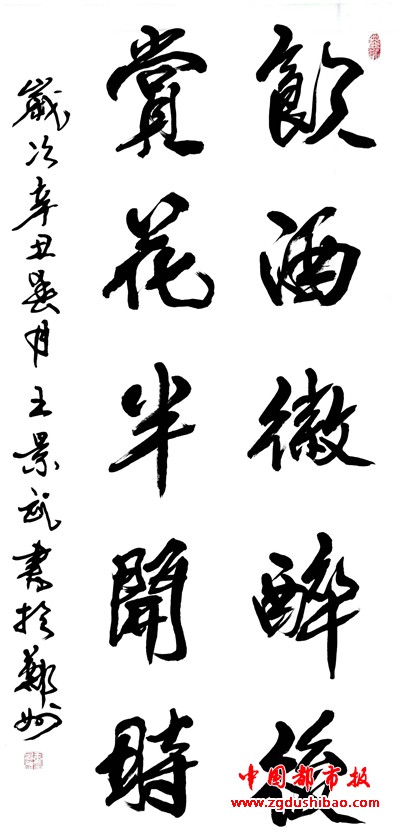 飲酒微醉後
賞花半開時
歲次辛丑月王景武書於鄭州
中国都市报
www.zgdushibao.com